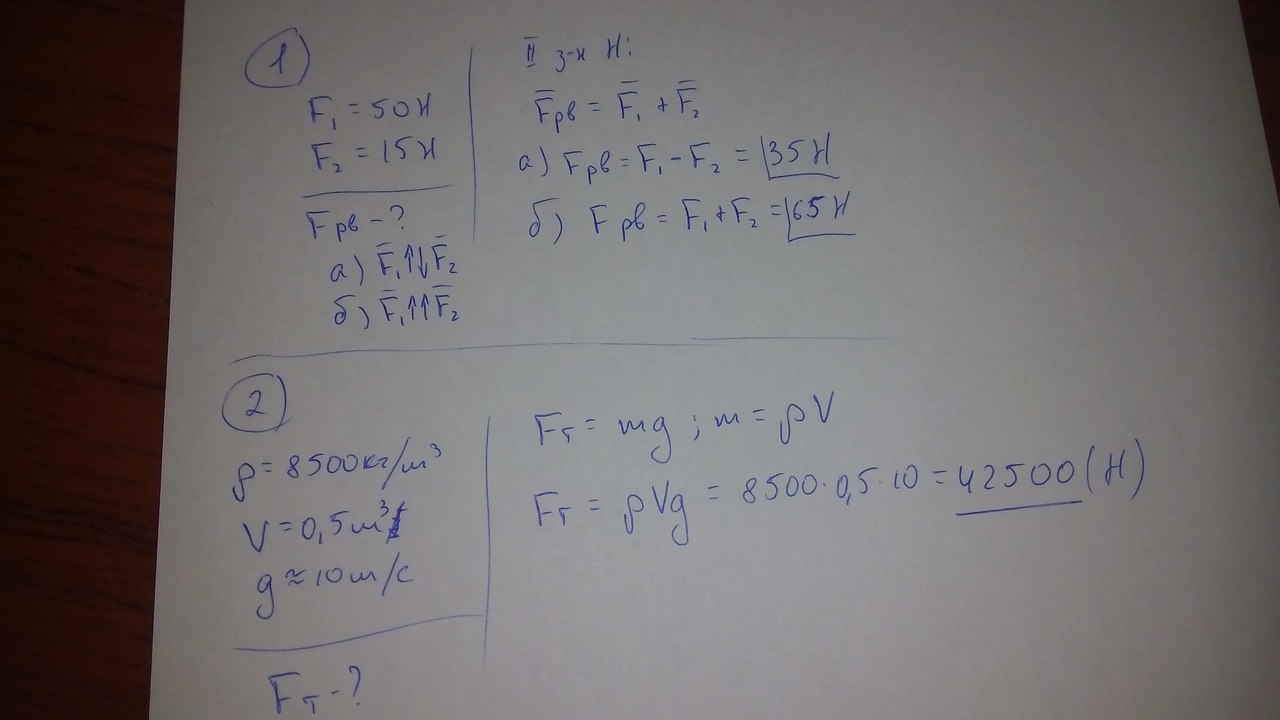 1
F₁ = 50 Н
F₂ = 15 Н
Fрв - ?
а) F̅₁↑↓F̅₂
б) F̅₁↑↑F̅₂
II з-н Н:
F̅рв = F̅₁ + F̅₂
а) Fрв = F₁ - F₂ = 35 Н
б) Fрв = F₁ + F₂ = 65 Н
2
ρ = 8500 кг/м³
V = 0,5 м³
g ≈ 10 м/с
Fт - ?
Fт = mg ; m = ρV
Fт = ρVg = 8500·0,5·10 = 42500 (Н)